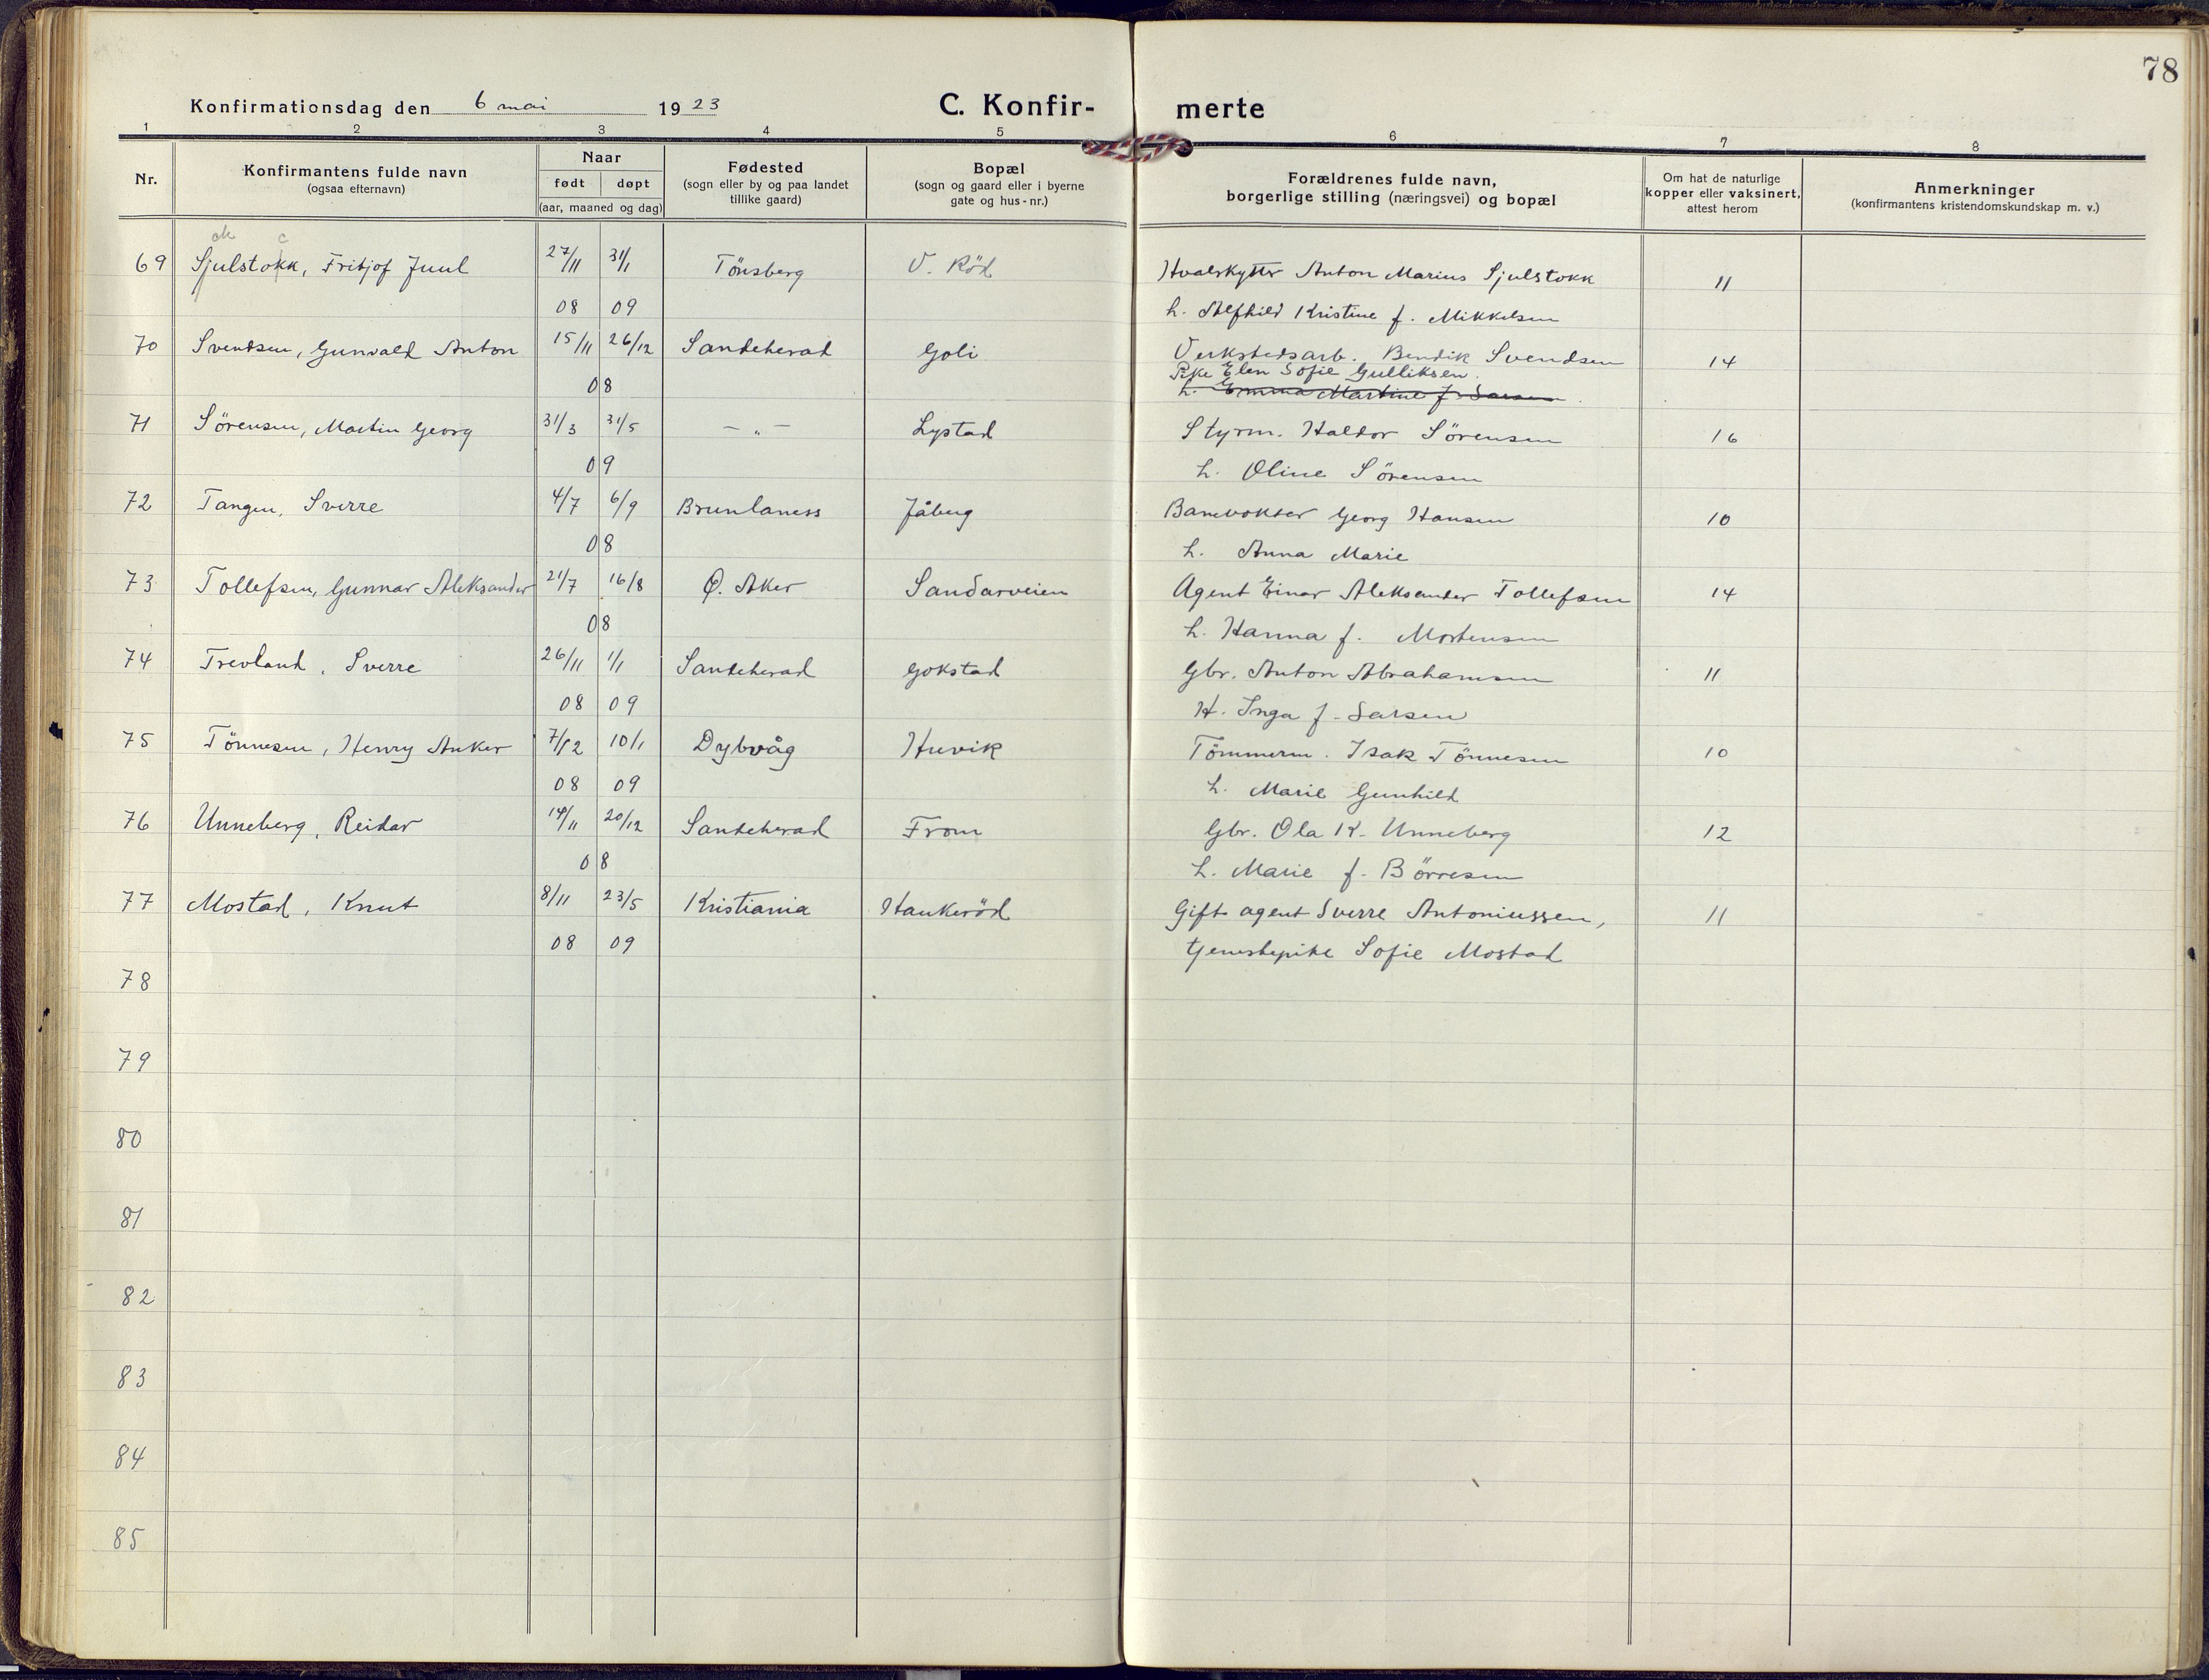 78
Konfirmationsdag den 6 mai 1923 C. Konfirmerte
1 2 3 4 5 6 7 8
Nr.
Konfirmantens fulde navn
(ogsaa efternavn)
Naar
født døpt
(aar, maaned og dag)
Fødested
(sogn eller by og paa landet
tillike gaard)
Bopæl
(sogn og gaard eller i byerne
gate og hus-nr.)
Forældrenes fulde navn,
borgerlige stilling (næringsvei) og bopæl
Om hat de naturlige
kopper eller vaksinert,
attest herom
Anmerkninger
(konfirmantens kristendomskundskap m. v.)
69 Sjulstokk, Fritjof Juul 27/11 31/1 Tönsberg V. Röd Hvalskytter Anton Marius Sjulstokk 11
08 09 h. Alfhild Kristine f. Mikkelsen
70 Svendsen, Gunvald Anton 15/11 26/12 Sandeherad Goli Verkstedsarb. Bendik Svendsen 14
Pike Elen Sofie Gulliksen.
08 h. Emma Martine f. Larsen
71 Sörensen, Martin Georg 31/3 31/5 — „ — Lystad Styrm. Haldor Sörensen 16
09 h. Oline Sörensen
72 Tangen, Sverre 4/7 6/9 Brunlaness Jåberg Banevokter Georg Hansen 10
08 h. Anna Marie
73 Tollefsen, Gunnar Aleksander 21/7 16/8 Ø. Aker Sandarveien Agent Einar Aleksander Tollefsen 14
08 h. Hanna f. Mortensen
74 Trevland, Sverre 26/11 1/1 Sandeherad Gokstad Gbr. Anton Abrahamsen 11
08 09 H. Inga f. Larsen
75 Tönnesen, Henry Anker 7/12 10/1 Dybvåg Huvik Tömmerm. Isak Tönnesen 10
08 09 h. Marie Gunhild
76 Unneberg, Reidar 14/11 20/12 Sandeherad From Gbr. Ola K. Unneberg 12
08 h. Marie f. Börresen
77 Mostad, Knut 8/11 23/5 Kristiania Haukeröd Gift agent Sverre Antoniussen, 11
08 09 tjenestepike Sofie Mostad
78
79
80
81
82
83
84
85